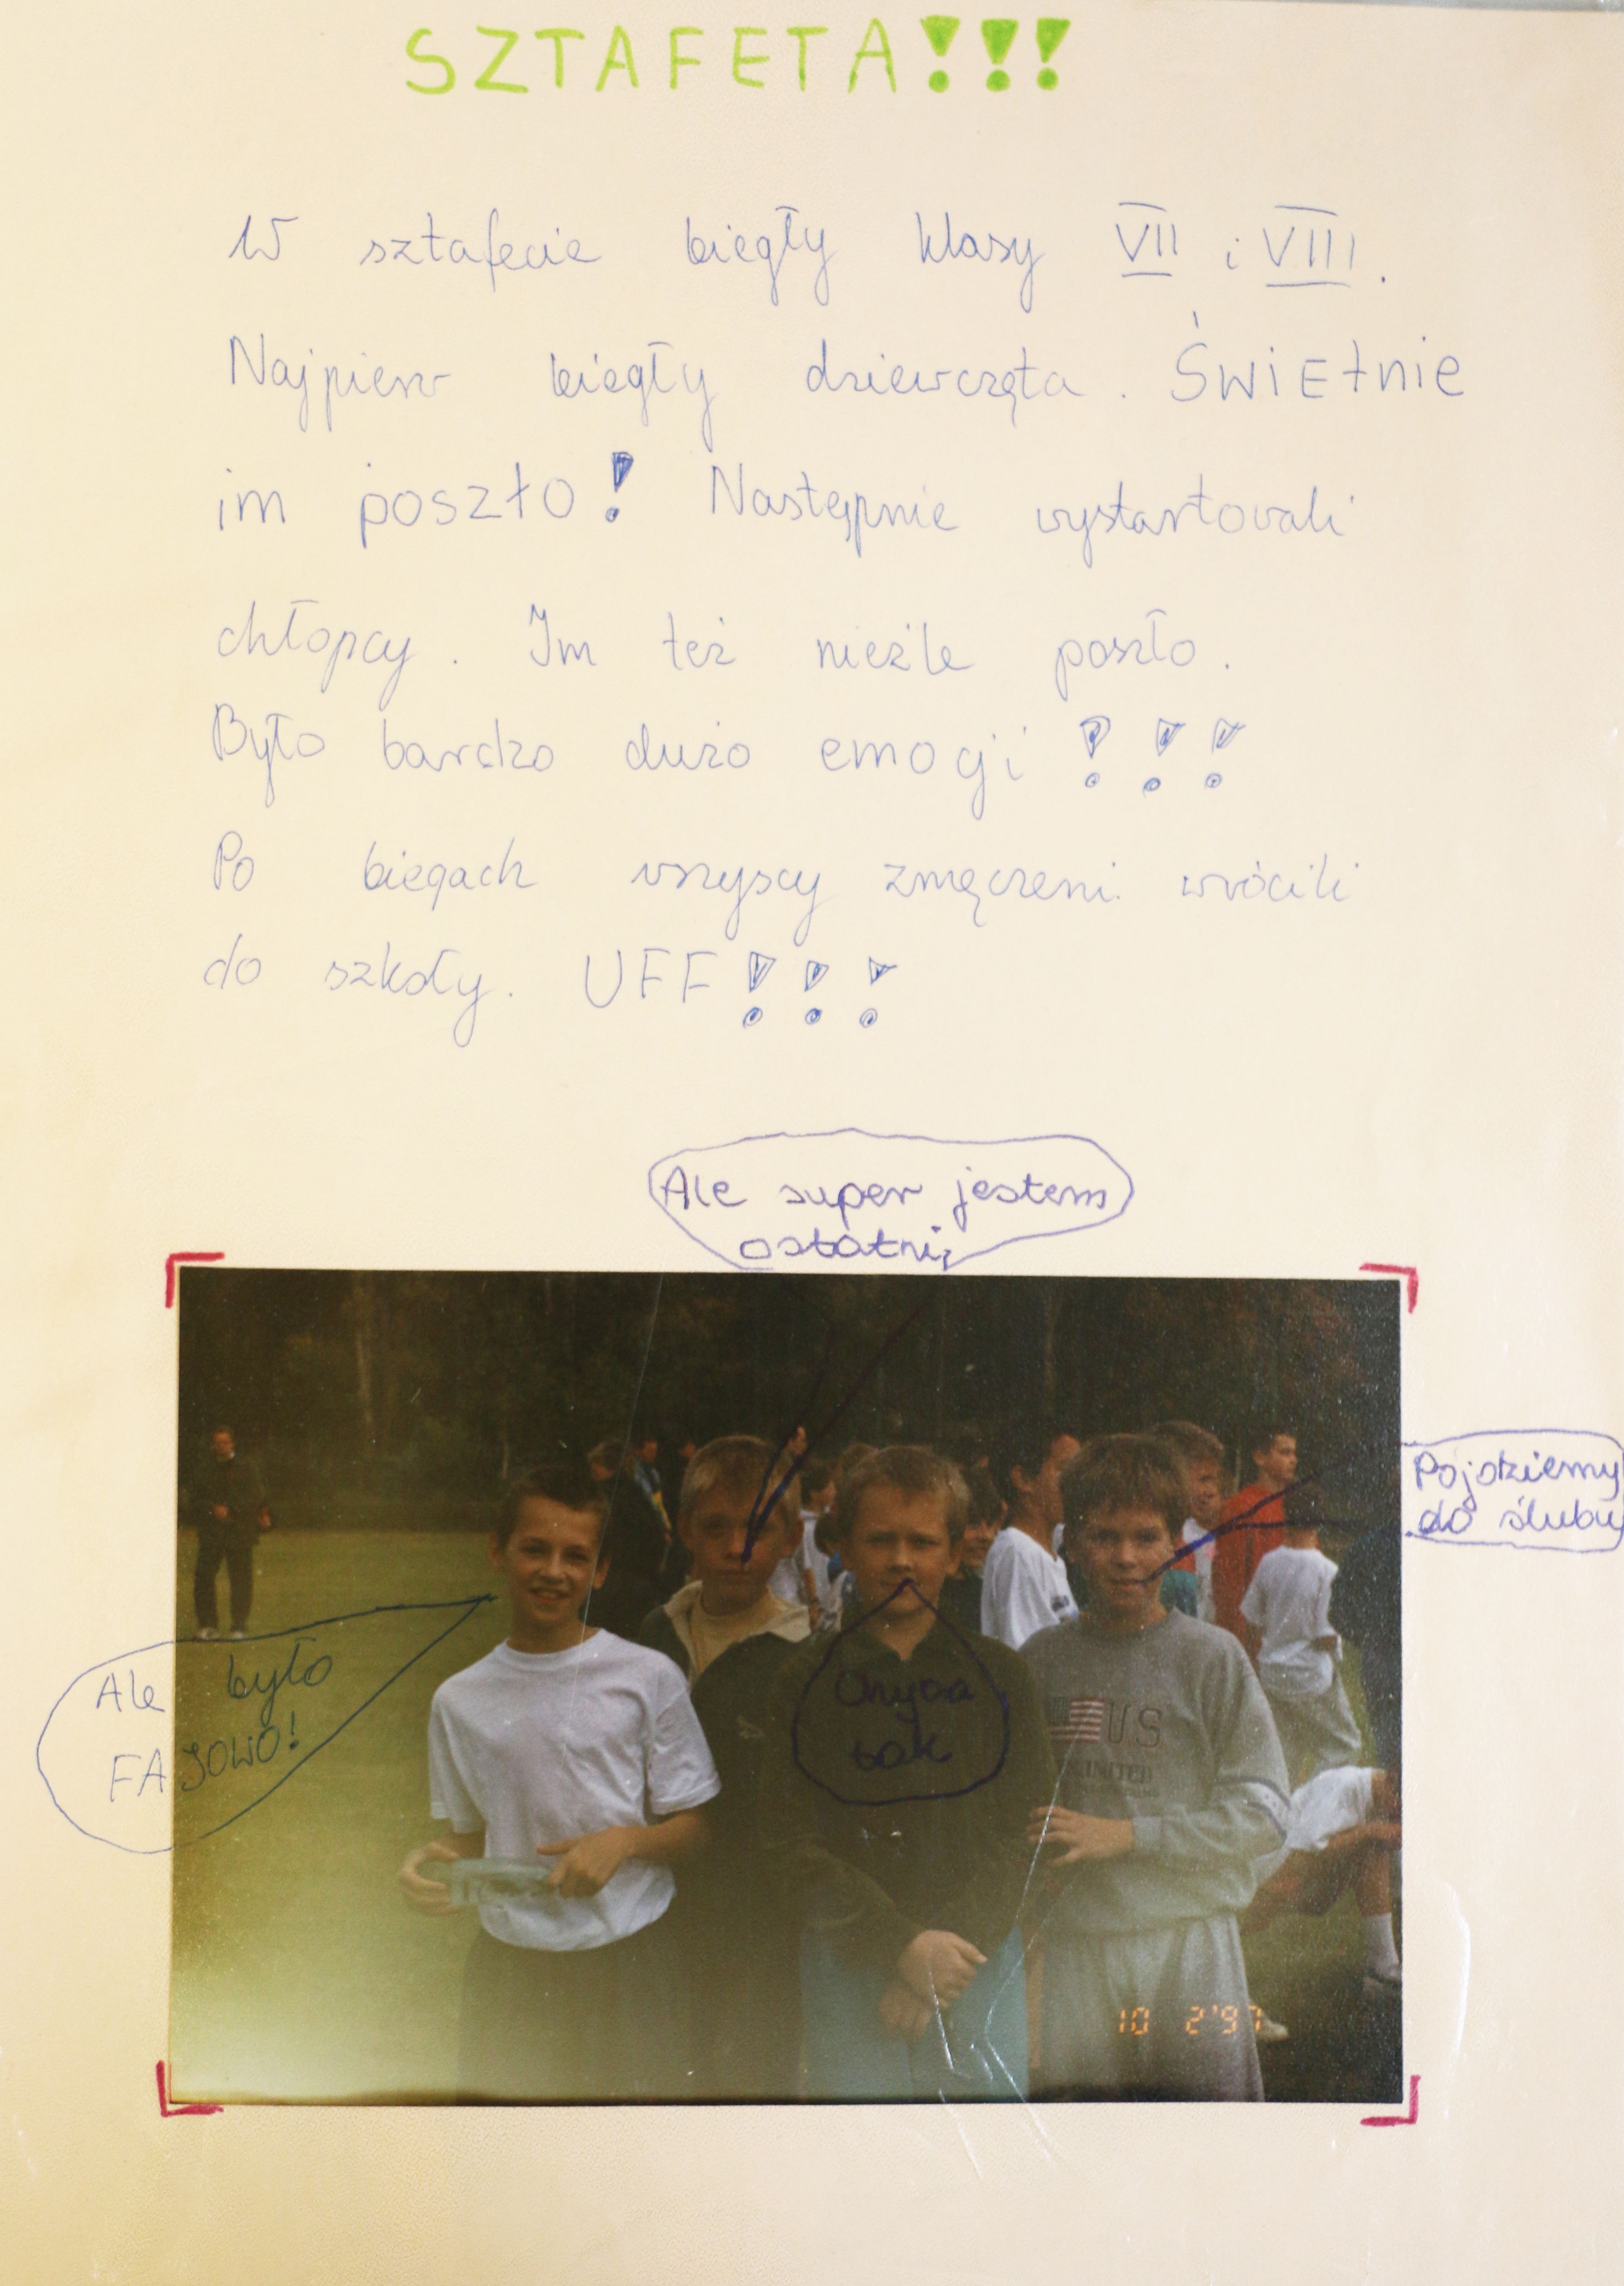 SZTAFETA!!!
W sztafecie biegły klasy VII i VIII.
Najpierw biegły dziewczęta. ŚWIEtnie
im poszło! Następnie wystartowali
chłopcy. Im też nieźle poszło.
Było bardzo dużo emocji !!!
Po biegach wszyscy zmęczeni wrócili
do szkoły. UFF!!!
Ale super jestem
ostatni,
Pojdziemy
do ślubu
Ale było
FAJOWO!
tak
US
UNITED
10 2'97